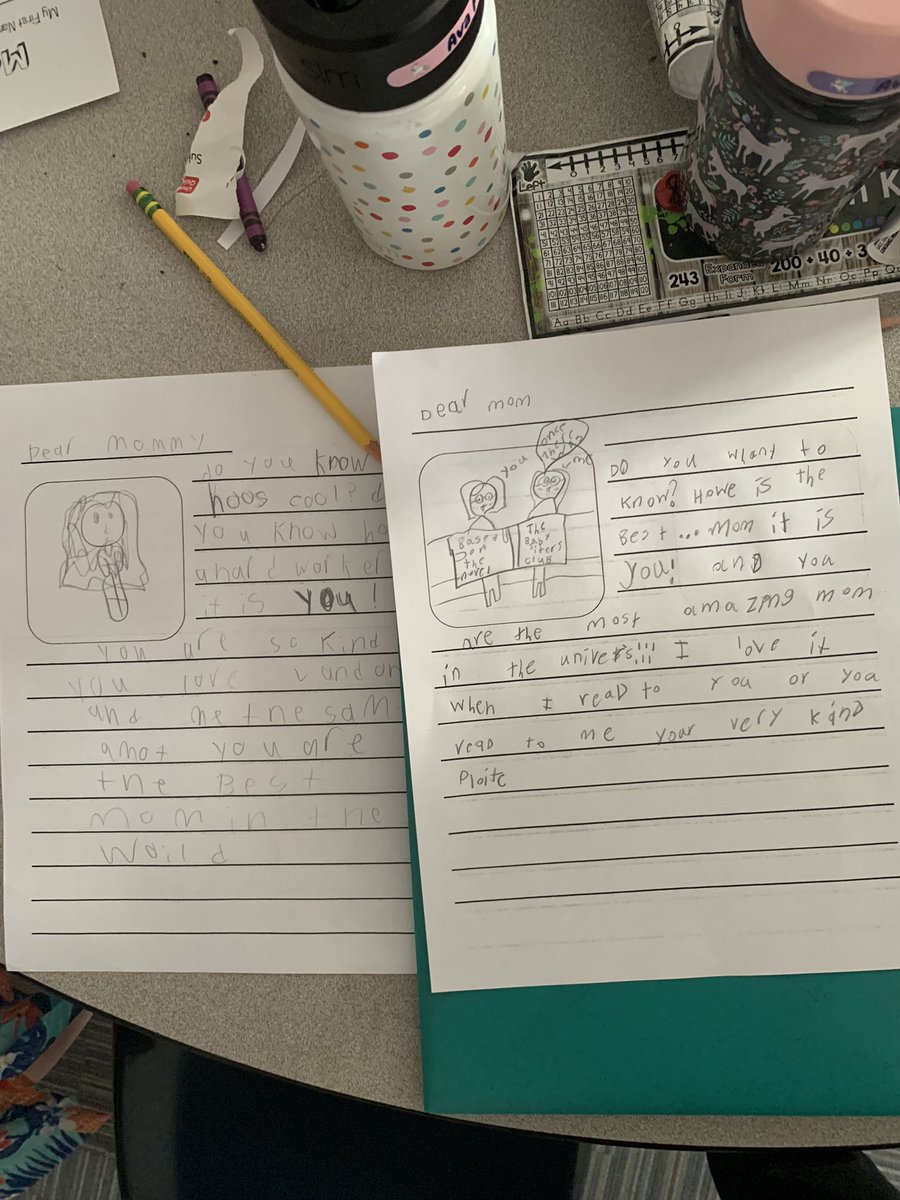 My First Nam
M
slm
Ava
Left
0 1 2 3 4 5 6 7
243 Expanded Form 200 + 40 + 3
Aa Bb Cc Dd Ee Ff Gg Hh Ii Jj Kk Ll Mm Nn Oo Pp Qq
Dear mommy
do you know
hoos cool? d
you know ho
a hard worker
it is you!
you are so kind
you love
and me the sam
amot you are
the Best
mom in the
Waild
Dear mom
you
me
once
Based
on
the
novel
The
Baby
siters
club
DO you wlant to
know? Howe is the
Best...mom it is
you! and you
are the most amazing mom
in the univers!!! I love it
when I read to you or you
read to me your very kind
Ploite